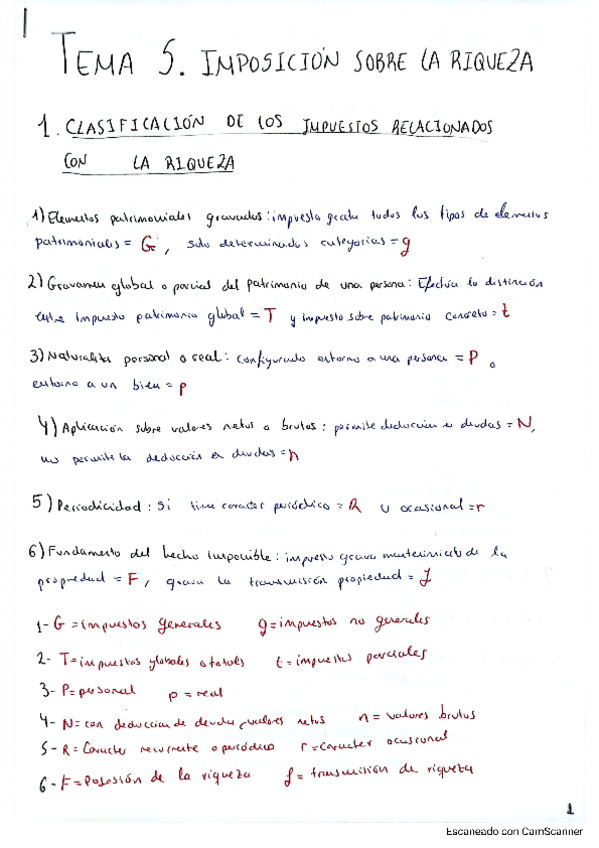 TEMA 5. IMPOSICIÓN SOBRE LA RIQUEZA
1. CLASIFICACIÓN DE LOS IMPUESTOS RELACIONADOS
CON LA RIQUEZA
1) Elementos patrimoniales gravados: impuesto grava todos los tipos de elementos
patrimoniales = G, solo determinadas categorias = g
2) Gravamen global o parcial del patrimonio de una persona: Efectúa la distinción
entre impuesto patrimonio global = T y impuesto sobre patrimonio concreto = t
3) Naturaleza personal o real: configurado entorno a una persona = P o
entorno a un bien = p
4) Aplicación sobre valores netos o brutos: permite deducción de deudas = N,
no permite la deducción de deudas = n
5) Periodicidad: Si tiene caracter periódico = R u ocasional = r
6) Fundamento del hecho imponible: impuesto grava mantenimiento de la
propiedad = F, grava la transmisión propiedad = f
1- G = impuestos generales g = impuestos no generales
2- T = impuestos globales o totales t = impuestos parciales
3- P = personal p = real
4- N = con deducción de deuda, valores netos n = valores brutos
5- R = Caracter recurrente o periódico r = caracter ocasional
6- F = Posesión de la riqueza f = transmisión de riqueza
1
Escaneado con CamScanner